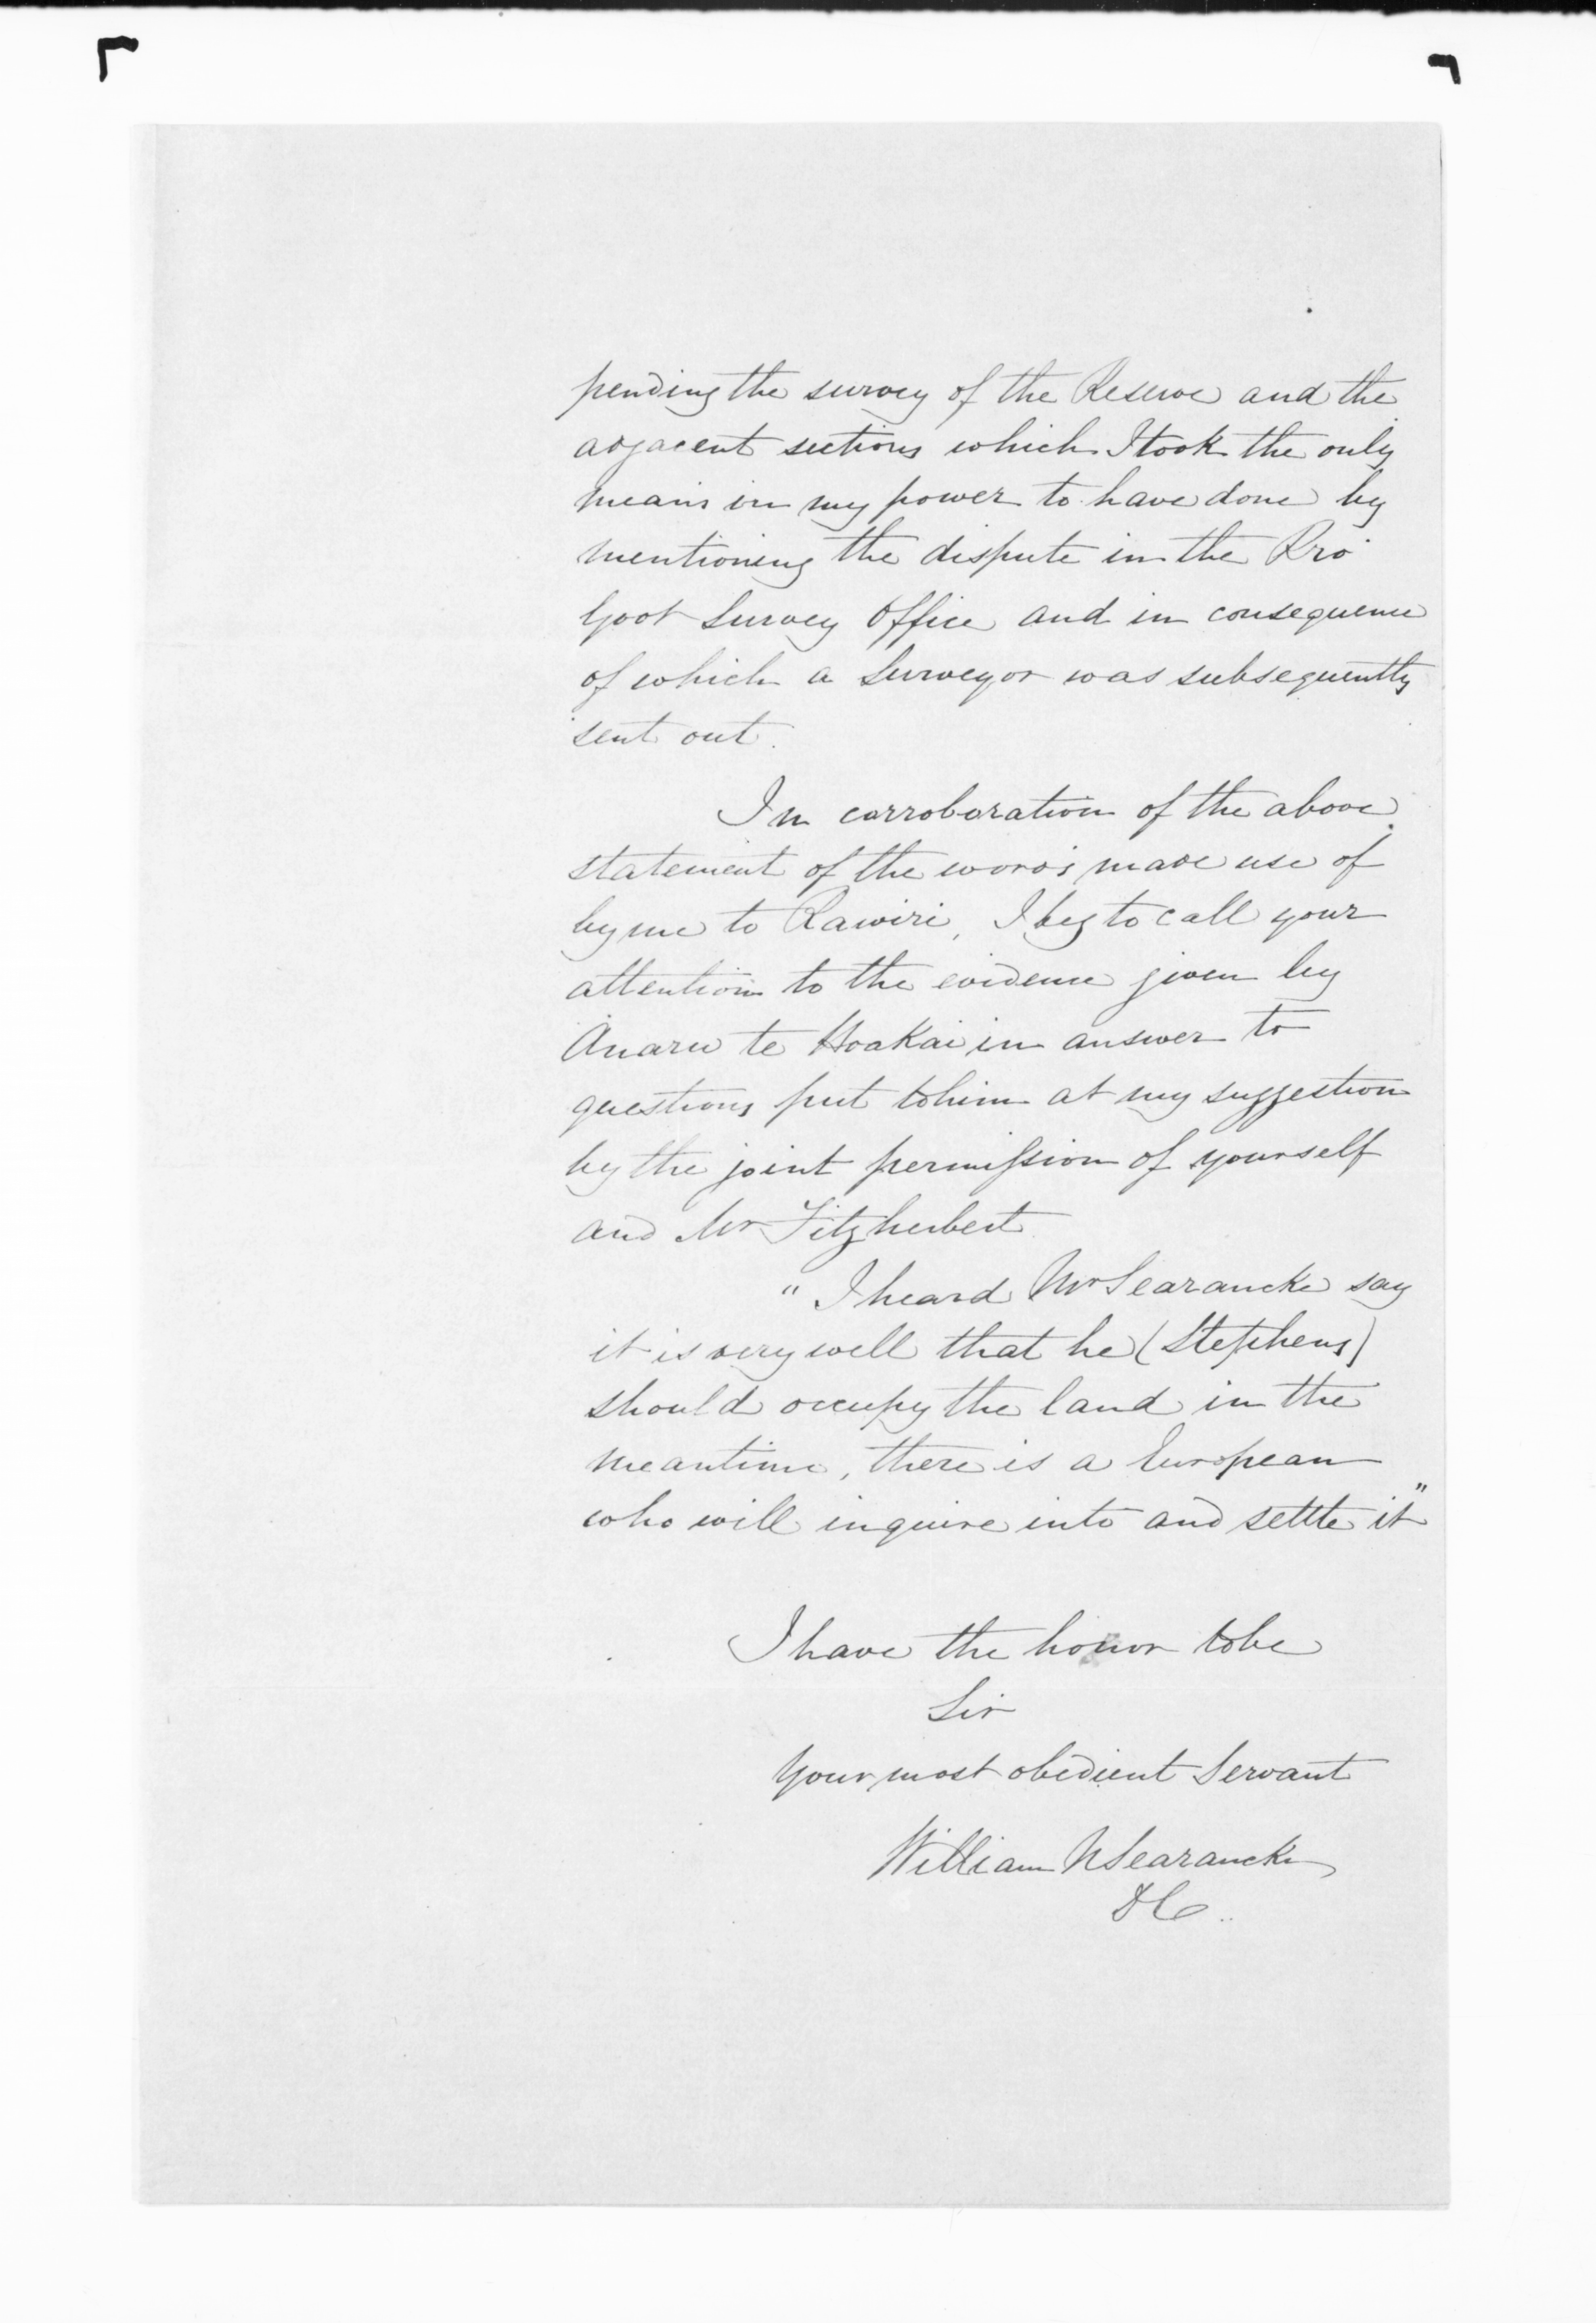 pending the survey of the Reserve and the
adjacent sections which I took the only
means in my power to have done by
mentioning the dispute in the Pro
Govt Survey Office and in consequence
of which a Surveyor was subsequently
sent out.
In corroboration of the above
statement of the words made use of
by me to Rawiri, I beg to call your
attention to the evidence given by
Anaru te Hoakai in answer to
questions put to him at my suggestion
by the joint permission of yourself
and Mr Fitzherbert
"I heard Mr Searancke say
it is very well that he (Stephens)
should occupy the land in the
meantime, there is a European
who will inquire into and settle it"
I have the honor to be
Sir
Your most obedient Servant
William N Searancke
DC